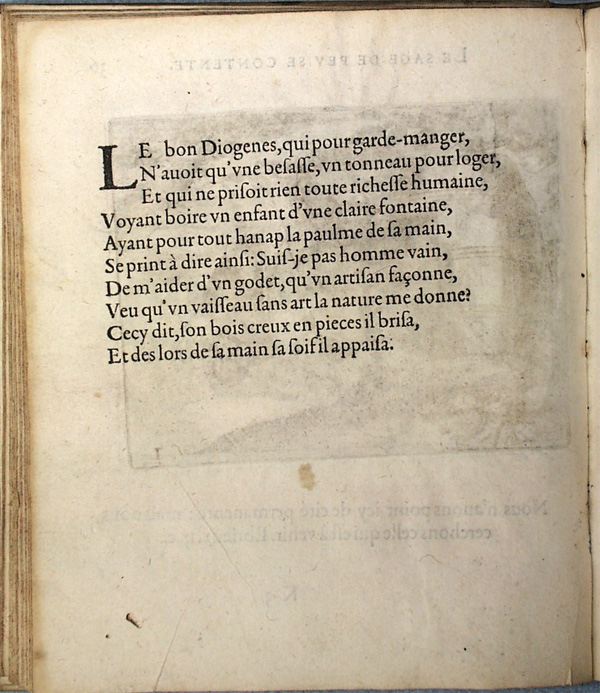 LE bon Diogenes, qui pour garde-manger,
N'auoit qu'vne beſaſſe, vn tonneau pour loger,
Et qui ne priſoit rien toute richeſſe humaine,
Voyant boire vn enfant d'vne claire fontaine,
Ayant pour tout hanap la paulme de ſa main,
Se print à dire ainſi: Suis-je pas homme vain,
De m'aider d'vn godet, qu'vn artiſan façonne,
Veu qu'vn vaiſſeau ſans art la nature me donne?
Cecy dit, ſon bois creux en pieces il briſa,
Et des lors de ſa main ſa ſoif il appaiſa.